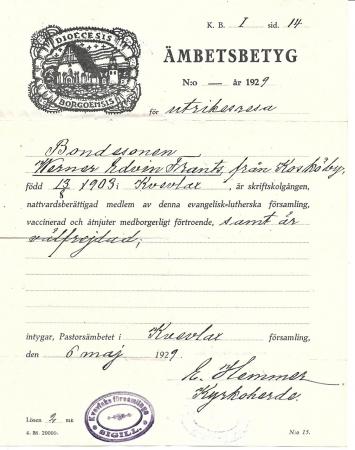 K. B. I sid. 14
DIOECESIS
BORGOENSIS
ÄMBETSBETYG
N:o — år 1929
för utrikesresa
Bondesonen
Werner Edvin Frants, från Kosköby,
född 13/8 1903 i Kvevlax, är skriftskolgången,
nattvardsberättigad medlem av denna evangelisk-lutherska församling,
vaccinerad och åtnjuter medborgerligt förtroende, samt är
välfrejdad;
intygar, Pastorsämbetet i Kvevlax församling,
den 6 maj 1929.
E. Hemmer
Kyrkoherde.
Lösen 2 mk
4. Bt. 20000.
Kvevlax församlings
SIGILL
N:o 15.